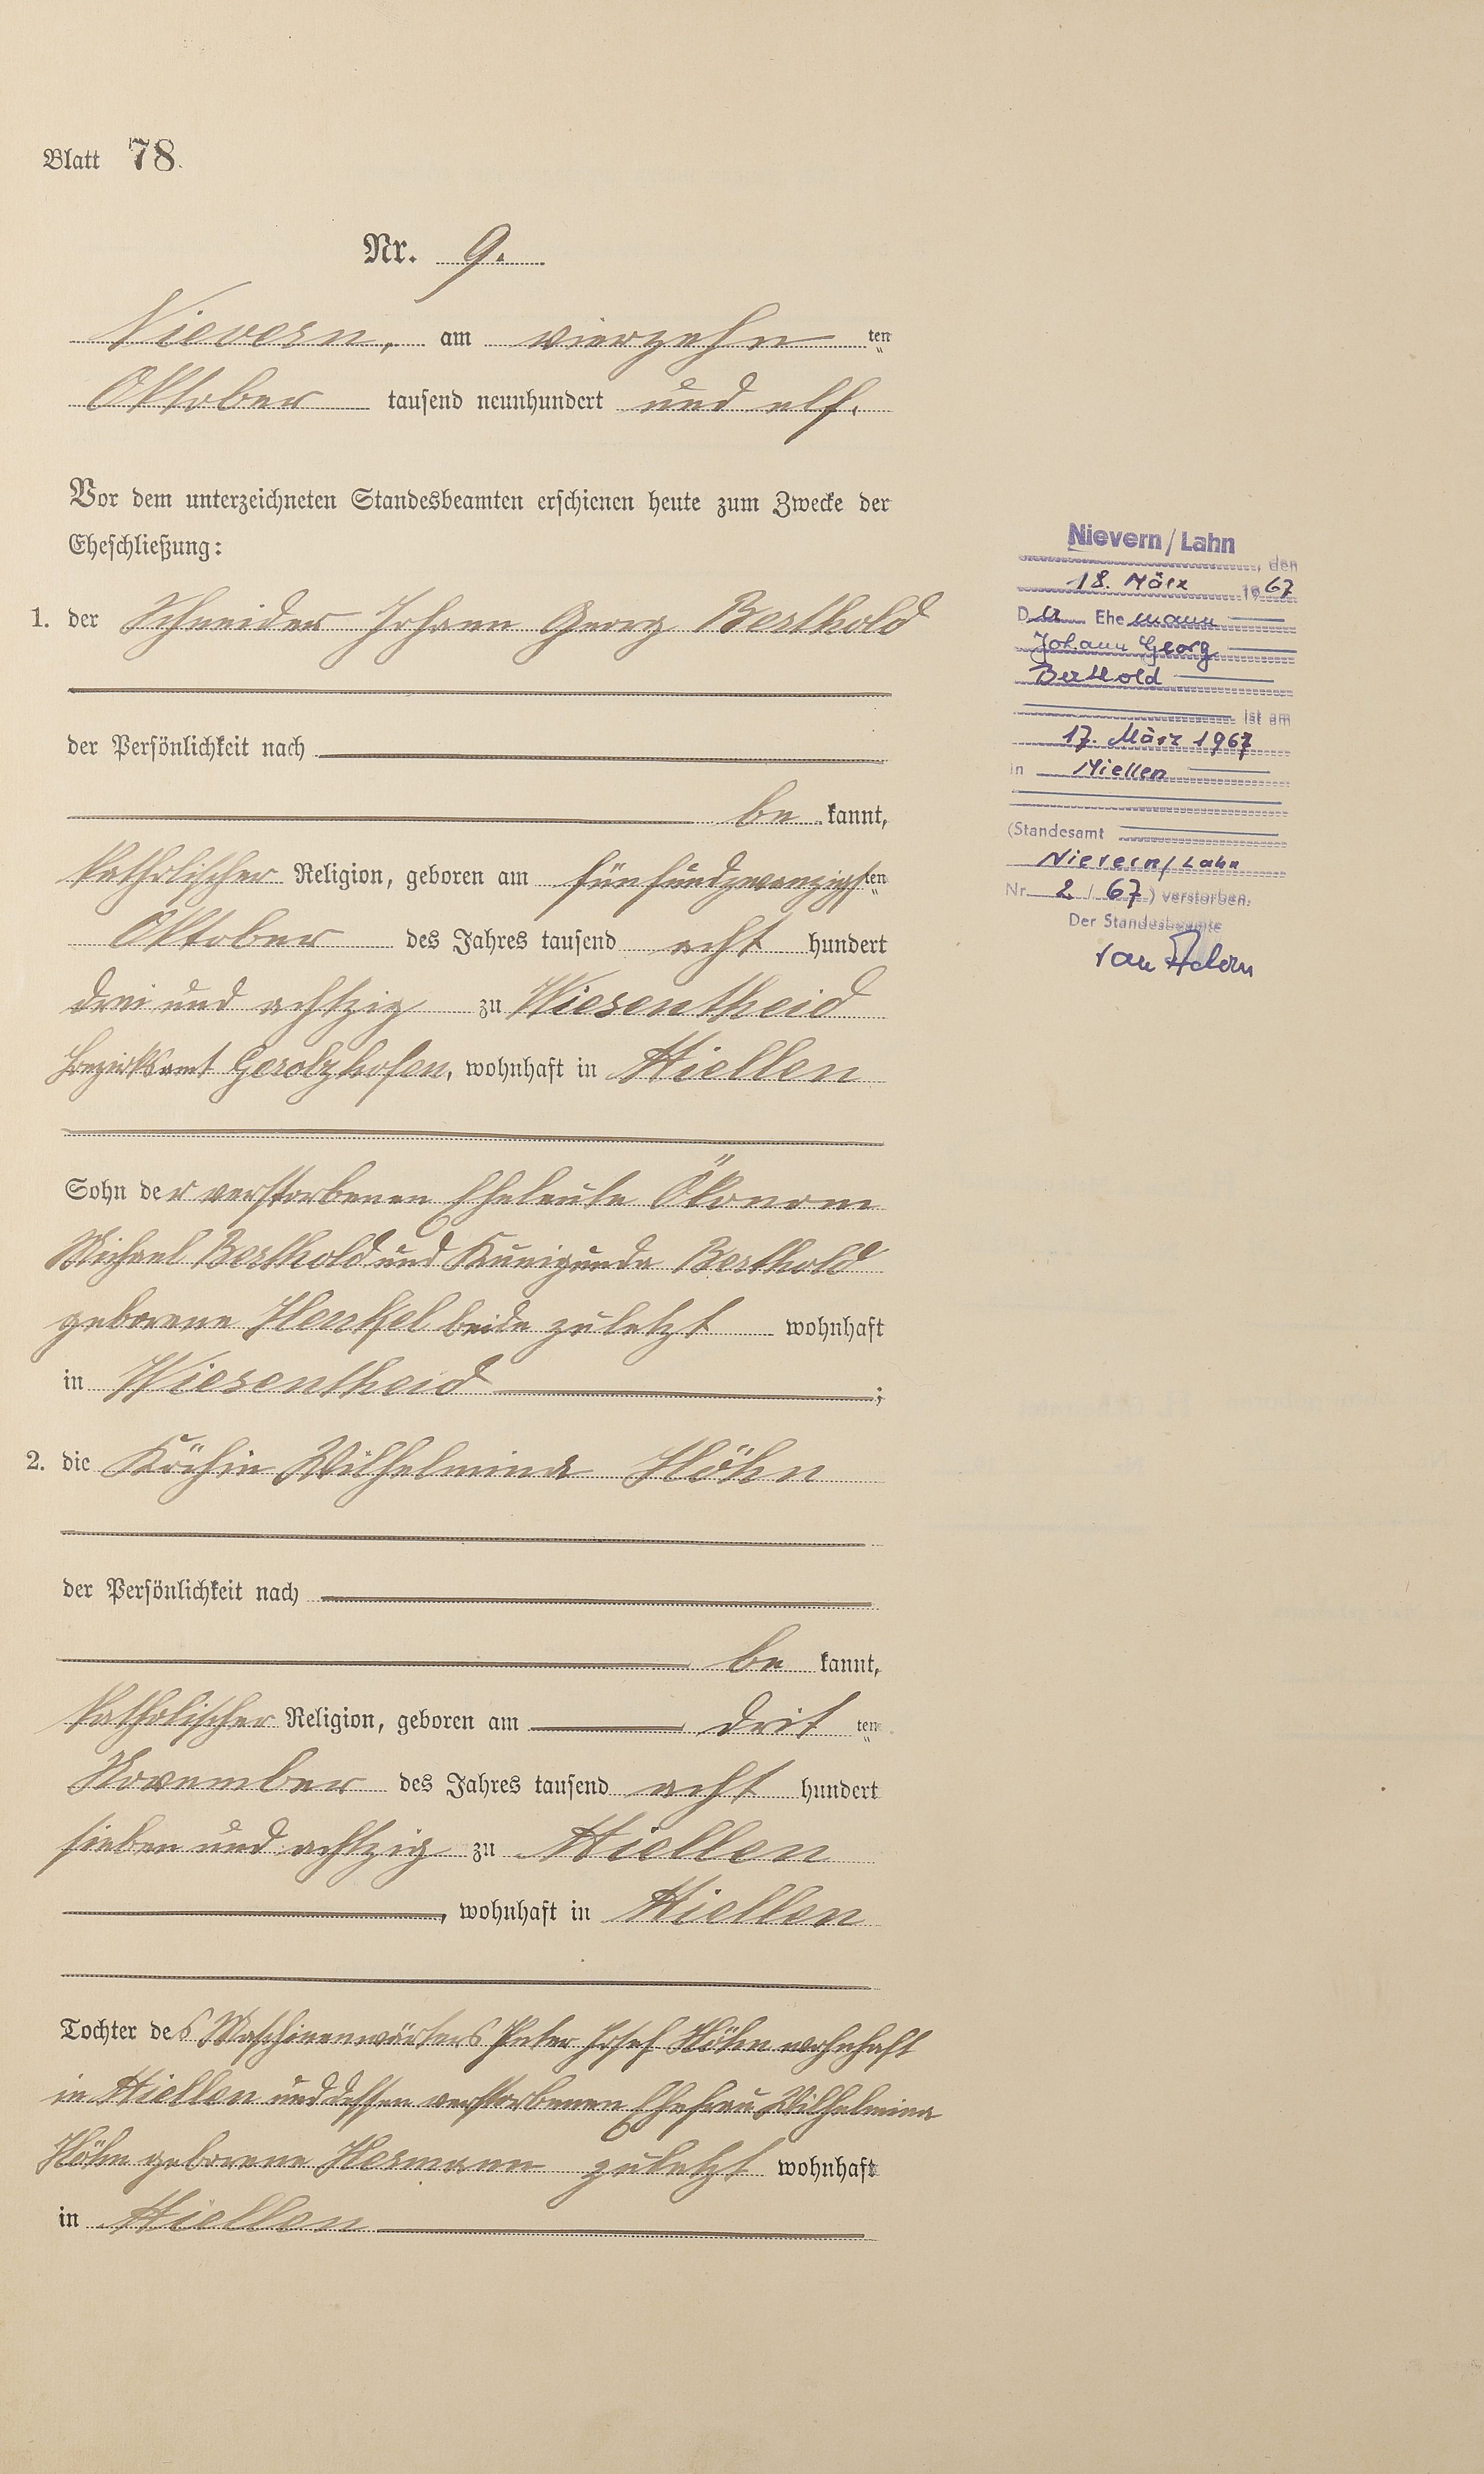 Blatt 78.
Nr. 9.
Nievern, am vierzehn ten
Oktober tausend neunhundert und elf.
Vor dem unterzeichneten Standesbeamten erschienen heute zum Zwecke der
Eheschließung:
1. der Schneider Johann Georg Berthold
der Persönlichkeit nach
be kannt,
katholischer Religion, geboren am fünfundzwanzigsten
Oktober des Jahres tausend acht hundert
drei und achtzig zu Wiesentheid
Bezirksamt Gerolzhofen, wohnhaft in Miellen
Sohn der verstorbenen Eheleute Ökonom
Michael Berthold und Kunigunda Berthold
geborene Henkel beide zuletzt wohnhaft
in Wiesentheid ;
2. die Köchin Wilhelmina Höhn
der Persönlichkeit nach
be kannt,
katholischer Religion, geboren am drit ten
November des Jahres tausend acht hundert
sieben und achtzig zu Miellen
, wohnhaft in Miellen
Tochter des Maschinenwärters Peter Josef Höhn wohnhaft
in Miellen und dessen verstorbenen Ehefrau Wilhelmina
Höhn geborene Hermann zuletzt wohnhaft
in Miellen
Nievern/Lahn
, den
18. März 1967
Der Ehemann
Johann Georg
Berthold
ist am
17. März 1967
in Miellen
(Standesamt
Nievern/Lahn
Nr. 2 / 67) verstorben.
Der Standesbeamte